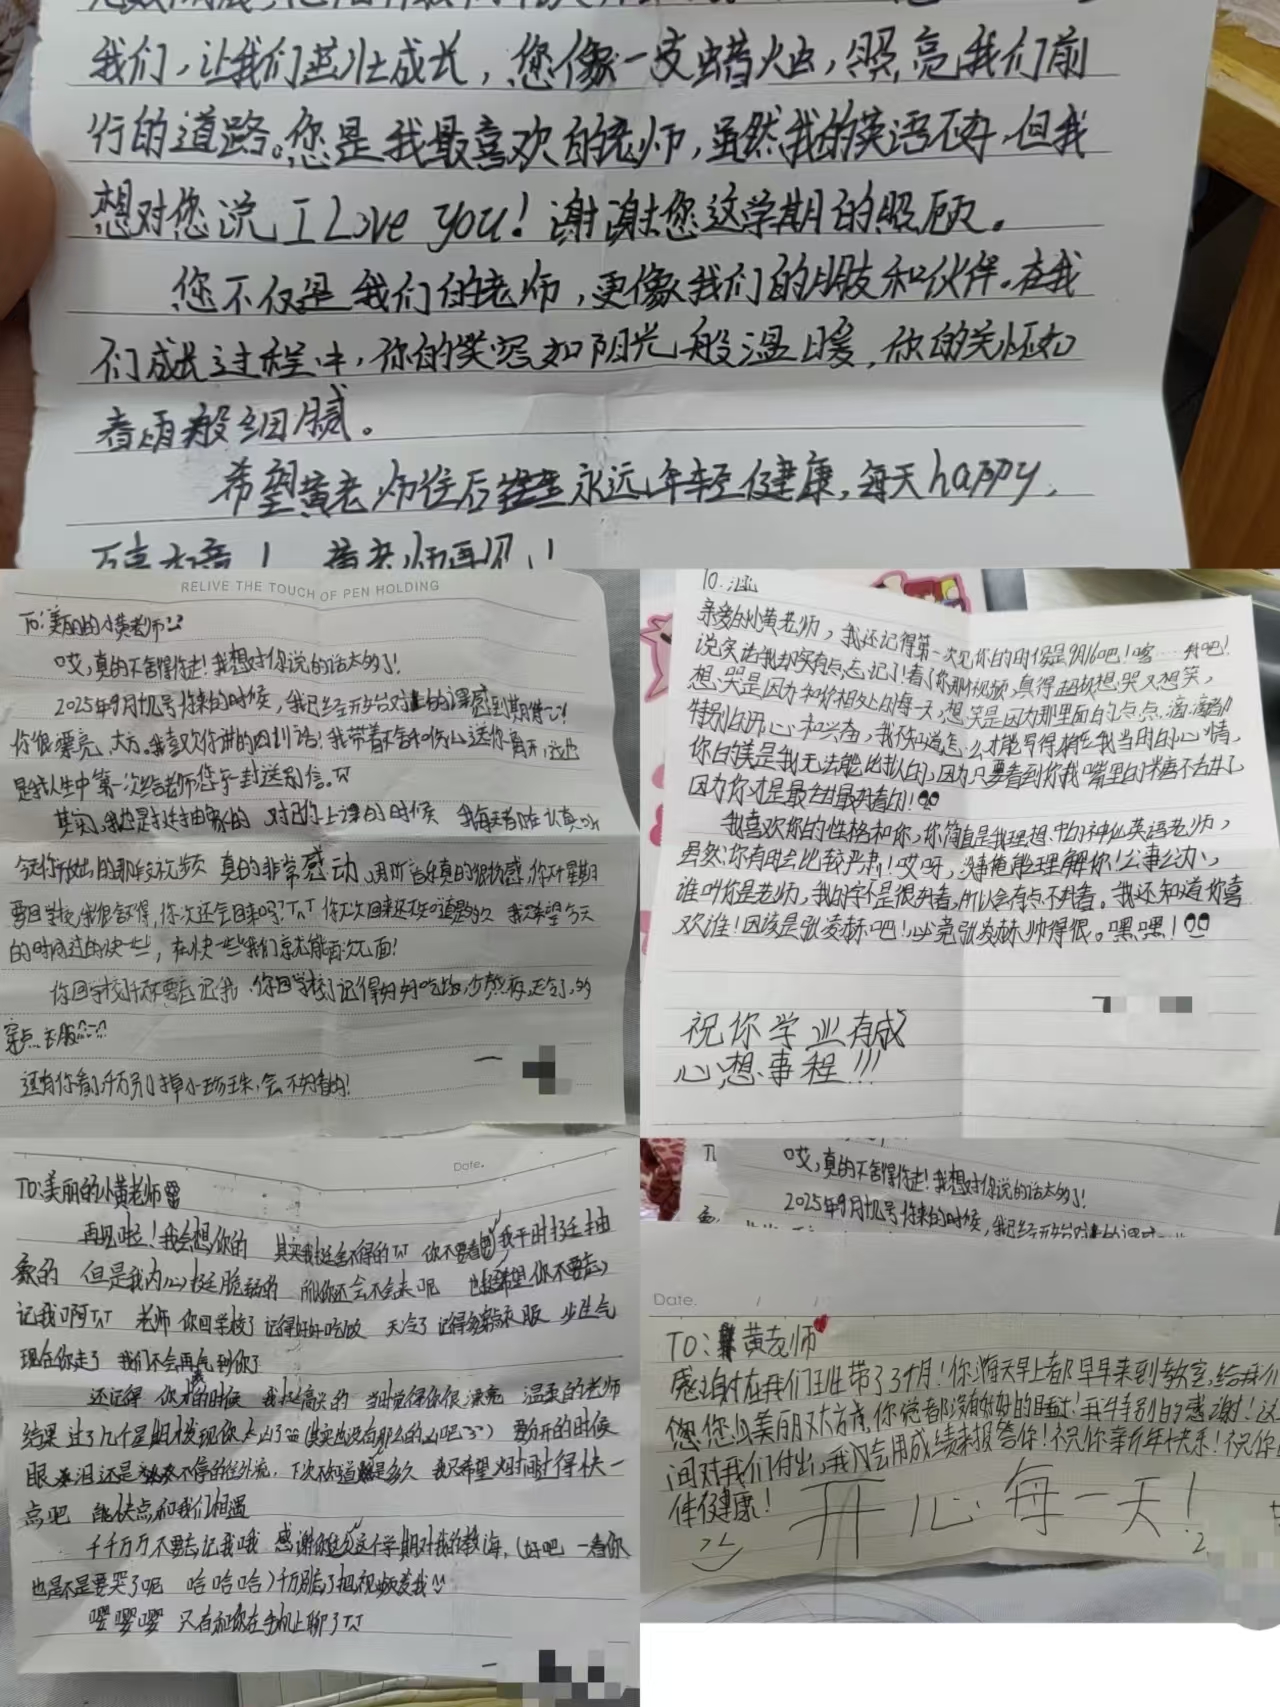 我们，让我们茁壮成长，您像一支蜡烛，照亮我们前
行的道路。您是我最喜欢的老师，虽然我的英语不好，但我
想对您说 I Love you！谢谢您这学期的照顾。
您不仅是我们的老师，更像我们的朋友和伙伴。在我
们成长过程中，你的笑容如阳光般温暖，你的关怀如
春雨般细腻。
希望黄老师往后 永远年轻健康，每天happy，
万事如意！ 黄老师再见！
RELIVE THE TOUCH OF PEN HOLDING
To：美丽的小黄老师
哎，真的不舍得你走！我想对你说的话太多了！
2025年9月 号你来的时候，我已经开始对 的课感到期待了！
你很漂亮、大方。我喜欢你讲的四川话！我带着不舍和伤心送你离开，这也
是我人生中第一次给老师您写一封送别信。TT
其实，我也是挺抽象的 对已你上课的时候 我每天都在认真听
今天你放出的那段视频 真的非常感动，用 音乐真的很伤感，你下星期
要回学校，我很舍不得，你次还会回来吗？TnT 你下次回来还不知道多久 我只希望 今天
的时间过的快一些，在快一些我们就能再次见面！
你回学校千万不要忘记我 你回学校了记得好好吃饭，少熬夜，天冷了，多
穿点衣服
还有你看 千万别 掉小珍珠，会不好看的！
To：涵
亲爱的小黄老师，我还记得第一次见你的时候是9月16吧！嗯……对吧！
说实话我却有点忘记了！看了你那视频，真得超级想哭又想笑，
想哭是因为和你相处的每一天，想笑是因为那里面的点点滴滴
特别的开心和兴奋，我不知道怎么才能写得 我当时的心情，
你的美是我无法能比拟的，因为只要看到你我嘴里的 不出去了
因为你才是最 最好看的！
我喜欢你的性格和你，你简直是我理想中的神仙英语老师，
虽然你有时会比较严肃！哎呀，没事俺能理解你！公事公办，
谁叫你是老师，我的字不是很好看，所以会有点不好看。我还知道你喜
欢谁！因该是张凌赫吧！必竟张凌赫帅得很。嘿嘿！
祝你学业有成
心想事程！！！
Date.
TO：美丽的小黄老师
再见啦！我会想你的 其实我挺舍不得的TT 你不要看我平时挺抽
象的 但是我内心挺脆弱的 所以你还会不会来呢 也挺希望你不要忘
记我啊TnT 老师 你回学校了记得好好吃饭 天冷了记得多穿衣服 少生气
现在你走了 我们不会再气到你了
还记得 你来的时候 我挺高兴的 当时觉得你很漂亮 温柔的老师
结果过了几个星期才发现你太凶了 （其实也没有那么的凶吧？？） 要分开的时候
眼泪还是 不停的往外流，下次不知道是多久 我只希望 时间过得快一
点吧 能快点和我们相遇
千千万万不要忘记我哦 感谢你 这个学期对我的教诲，（好吧 一看你
也是不是要哭了呢 哈哈哈）千万别忘了把视频发我
嘤嘤嘤 只有和你在手机上聊了TT
哎，真的不舍得你走！我想对你说的话太多了！
2025年9月 号你来的时候，我已经开始对 的课
Date.
TO：黄老师
感谢在我们班带了3个月！你每天早上都早早来到教室，给我们
您，您人美丽又大方，你觉都没有好好的睡过！我特别的感谢！这
间对我们付出，我们会用成绩来报答你！祝你新年快乐！祝你
体健康！
开心每一天！